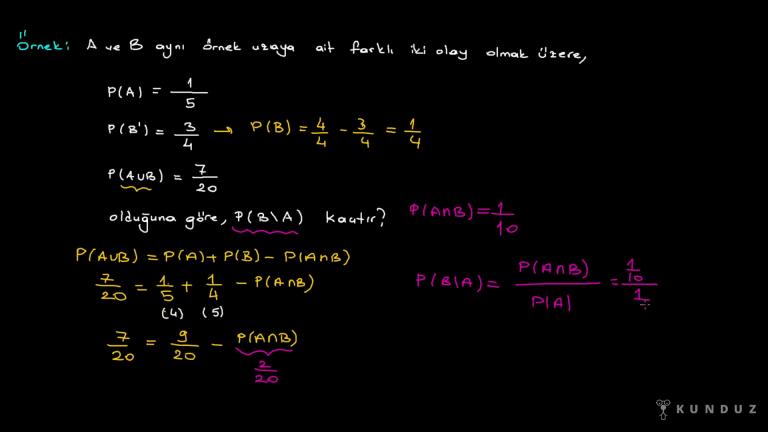 Örnek: A ve B aynı örnek uzaya ait farklı iki olay olmak üzere,
P(A) = 1/5
P(B') = 3/4 → P(B) = 4/4 - 3/4 = 1/4
P(A∪B) = 7/20
olduğuna göre, P(B\A) kaçtır?
P(A∩B) = 1/10
P(A∪B) = P(A) + P(B) - P(A∩B)
7/20 = 1/5 + 1/4 - P(A∩B)
(4) (5)
7/20 = 9/20 - P(A∩B)
2/20
P(B\A) = P(A∩B)/P(A) = 1/10 / 1/
KUNDUZ